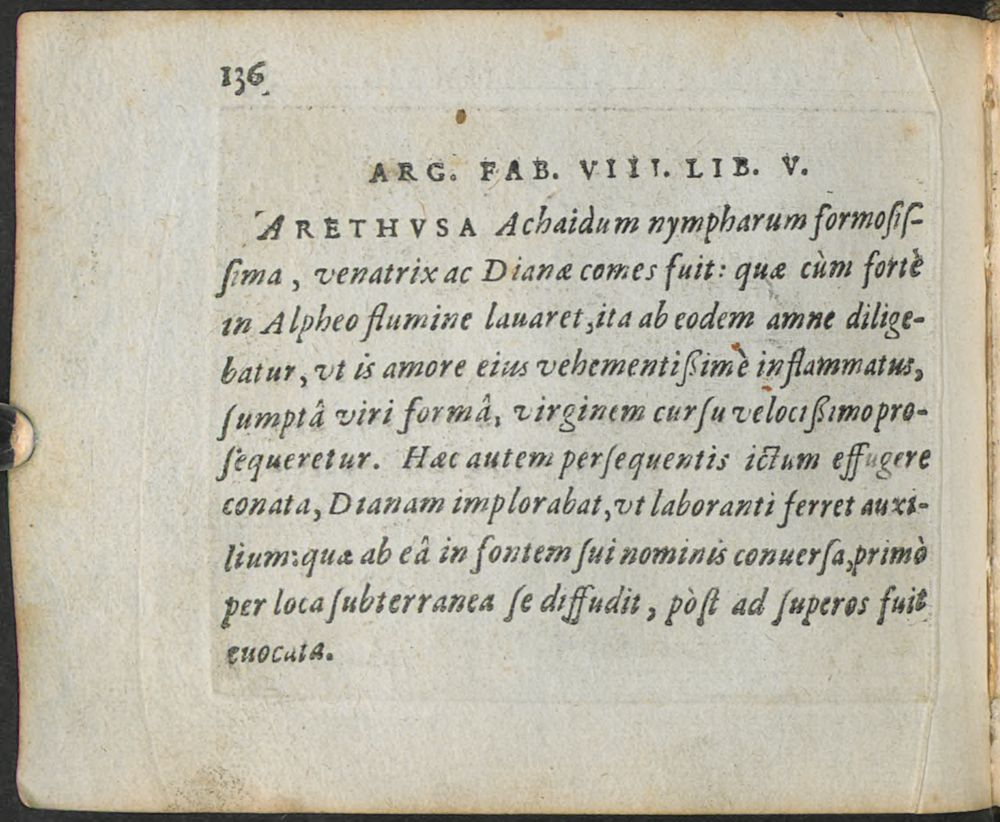 136
ARG. FAB. VIII. LIB. V.
ARETHVSA Achaidum nympharum formosiſ-
ſima, venatrix ac Dianæ comes fuit: quæ cùm fortè
in Alpheo flumine lauaret, ita ab eodem amne dilige-
batur, vt is amore eius vehementißimè inflammatus,
ſumptâ viri formâ, virginem curſu velocißimo pro-
ſequeretur. Hæc autem perſequentis ictum effugere
conata, Dianam implorabat, vt laboranti ferret auxi-
lium: quæ ab eâ in fontem ſui nominis conuerſa, primò
per loca ſubterranea ſe diffudit, pòſt ad ſuperos fuit
euocata.